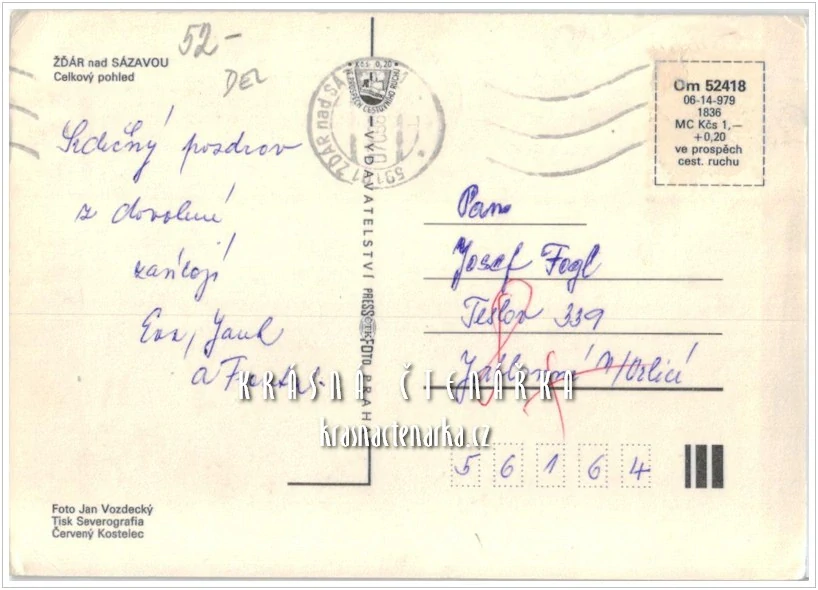 52-
DEL
ŽĎÁR nad SÁZAVOU
Celkový pohled
Srdečný pozdrov
z dovolené
zasílají
Eva, Jank
a Frant.
Foto Jan Vozdecký
Tisk Severografia
Červený Kostelec
Kčs 0,20
VE PROSPĚCH CESTOVNÍHO RUCHU
591 01 ŽĎÁR nad SÁ
VYDAVATELSTVÍ PRESSFOTO PRAHA
ČTK
Om 52418
06-14-979
1836
MC Kčs 1,—
+0,20
ve prospěch
cest. ruchu
Pan
Josef Fogl
Teslov 339
Jablonné n/Orlicí
5 6 1 6 4
KRÁSNÁ ČTENÁŘKA
krasnactenarka.cz